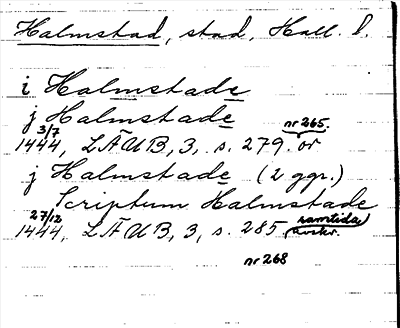 Halmstad, stad, Hall. l.
i Halmstade
j Halmstade
3/7 nr 265.
1444, LÄUB, 3, s. 279. or
j Halmstade (2 ggr.)
Scriptum Halmstade
27/12 samtida
1444, LÄUB, 3, s. 285. avskr.
nr 268